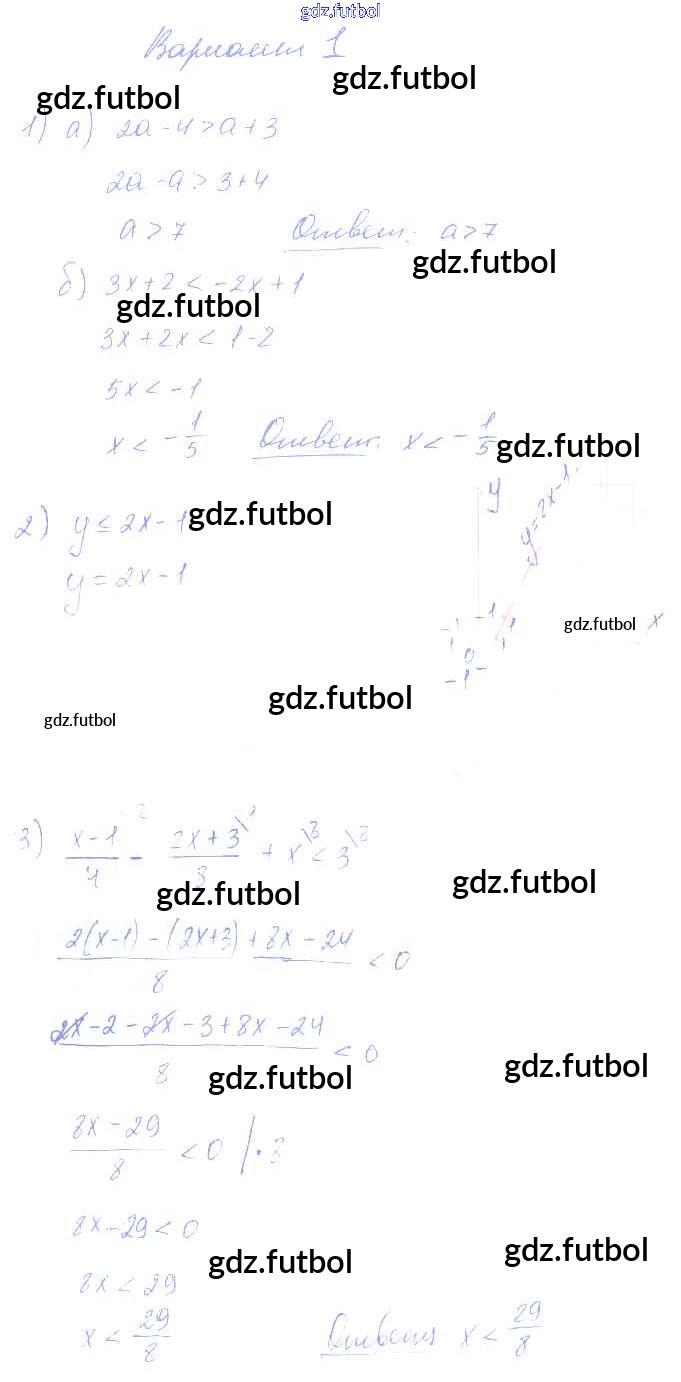 gdz.futbol
Вариант 1
gdz.futbol
gdz.futbol
1) а) 2a - 4 > a + 3
2a - a > 3 + 4
a > 7 Ответ: a > 7
gdz.futbol
б) 3x + 2 < -2x + 1
gdz.futbol
3x + 2x < 1 - 2
5x < -1
x < -1/5 Ответ: x < -1/5
gdz.futbol
2) y ≤ 2x - 1
gdz.futbol
y = 2x - 1
y
y = 2x - 1
-1
1
0
1
-1
x
gdz.futbol
gdz.futbol
gdz.futbol
3) (x-1)/4 \2 - (2x+3)/8 \1 + x \8 < 3 \8
gdz.futbol
gdz.futbol
(2(x-1) - (2x+3) + 8x - 24)/8 < 0
(2x - 2 - 2x - 3 + 8x - 24)/8 < 0
gdz.futbol
gdz.futbol
(8x - 29)/8 < 0 | · 8
8x - 29 < 0
gdz.futbol
gdz.futbol
8x < 29
x < 29/8 Ответ: x < 29/8